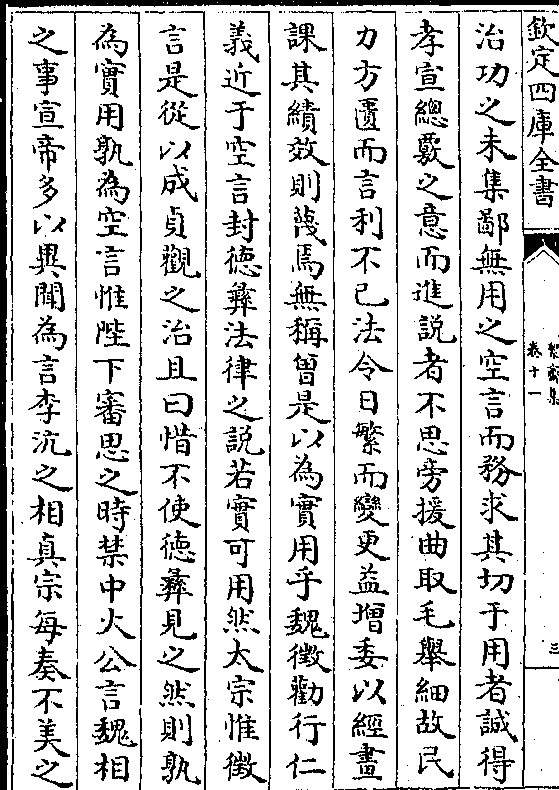 欽定四庫全書
卷十一
三
治功之未集鄙無用之空言而務求其切于用者誠得
孝宣總覈之意而進說者不思旁援曲取毛舉細故民
力方匱而言利不已法令日繁而變更益增委以經畫
課其績效則蔑焉無稱曾是以為實用乎魏徵勸行仁
義近于空言封德彝法律之説若實可用然太宗惟徵
言是從以成貞觀之治且曰惜不使德彝見之然則孰
為實用孰為空言惟陛下審思之時禁中火公言魏相
之事宣帝多以異聞為言李沆之相真宗每奏不美之